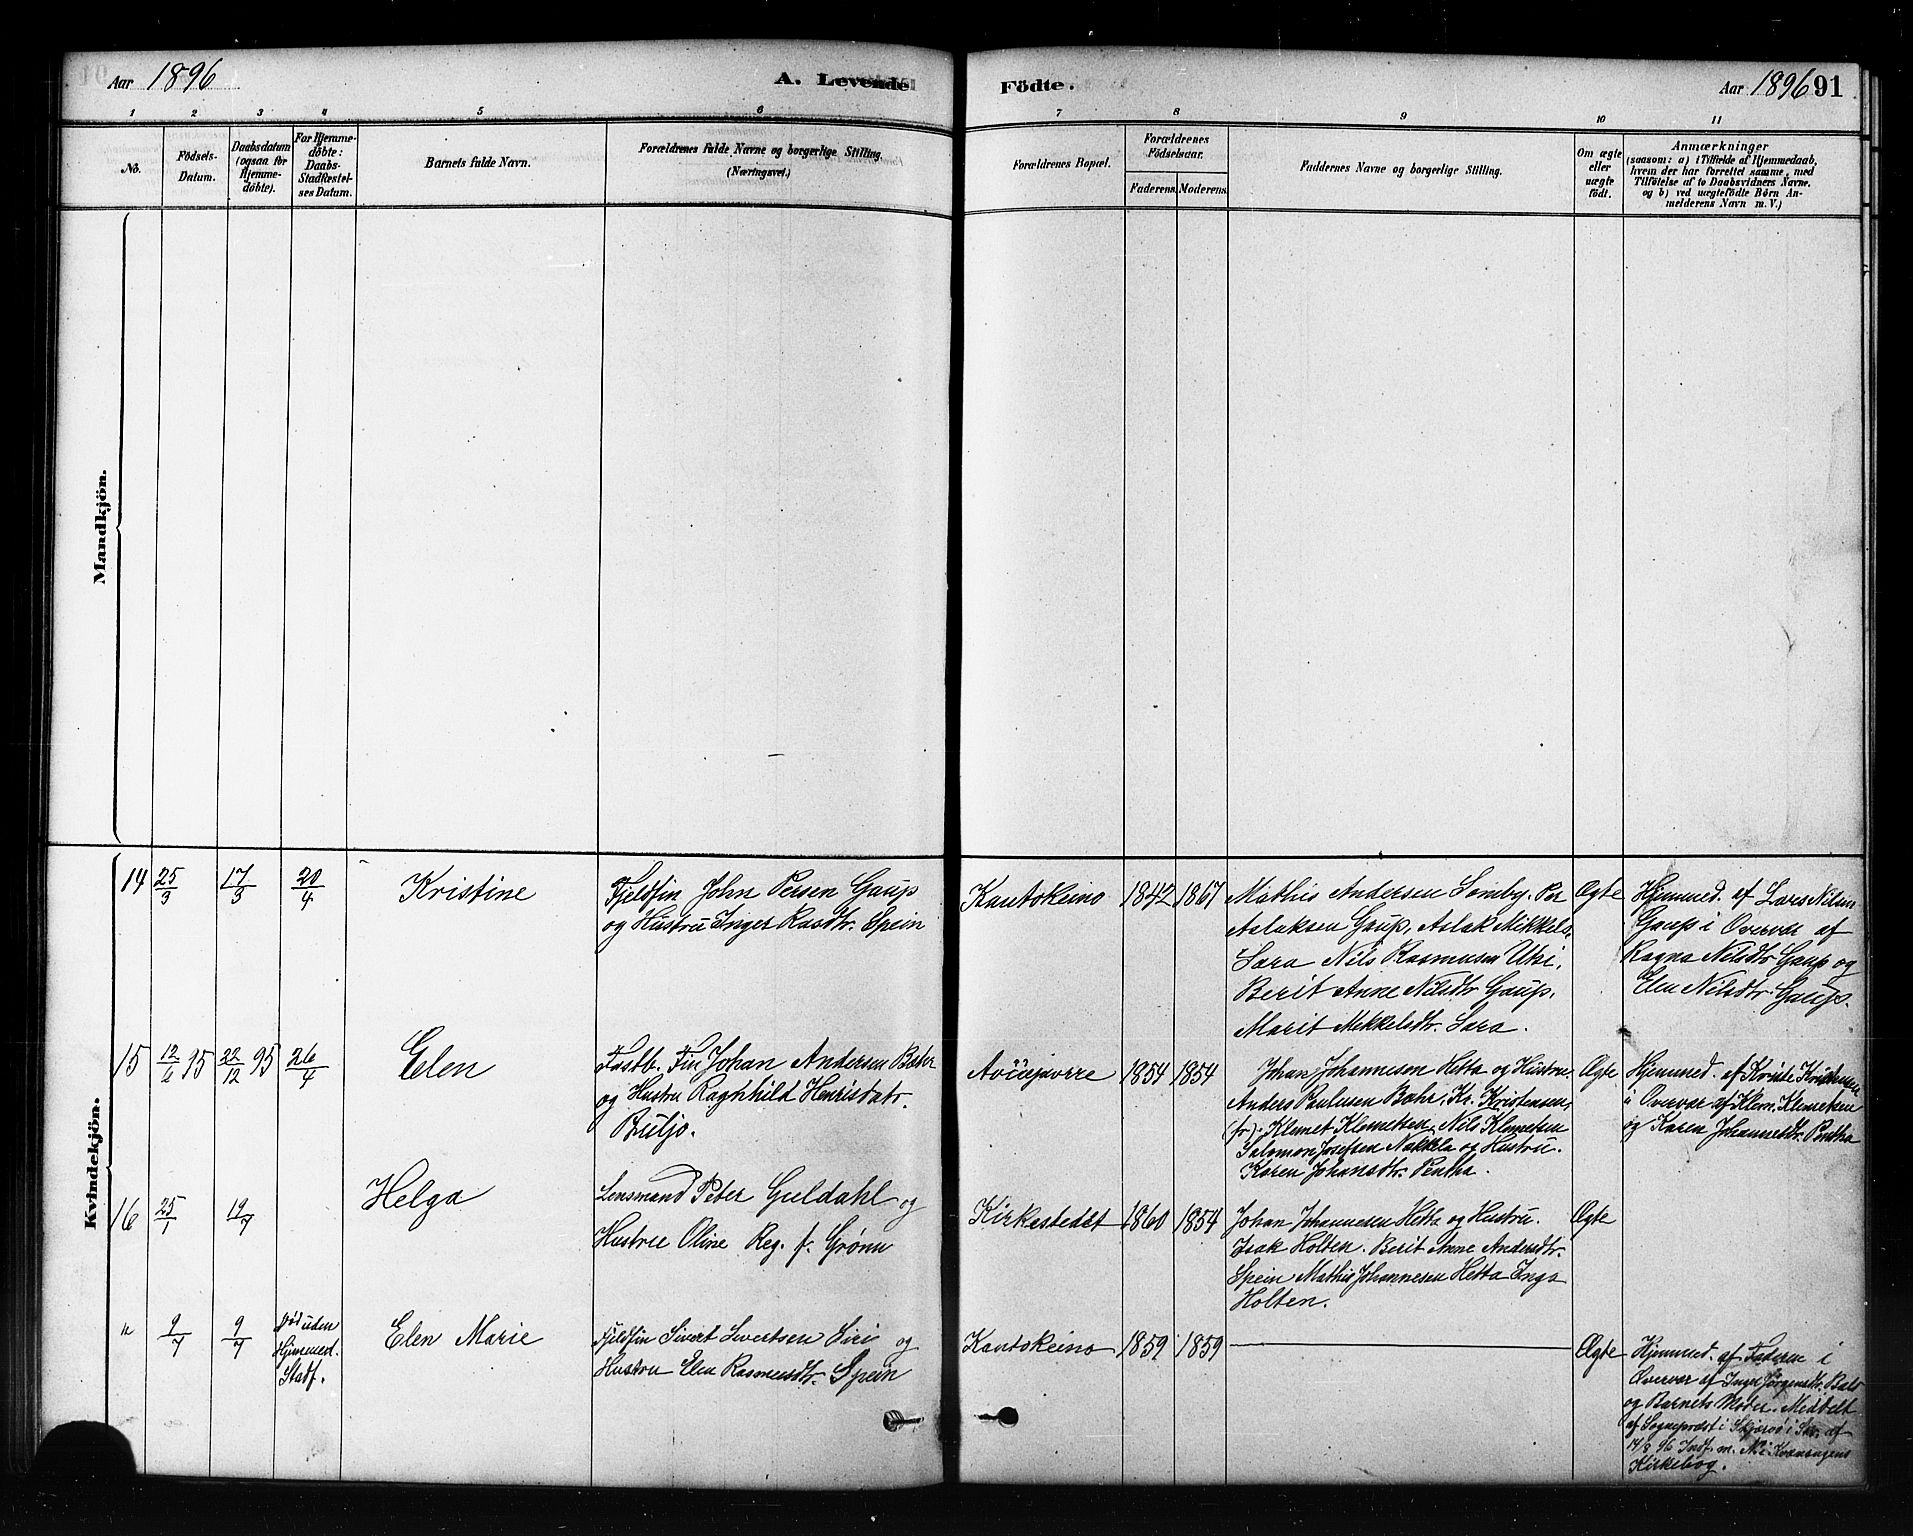 Aar 1896
A. Levende
Födte.
Aar 1896 91
1 2 3 4 5 6 7 8 9 10 11
No.
Födsels-
Datum.
Daabsdatum
(ogsaa for
Hjemme-
döbte).
For Hjemme-
döbte:
Daabs-
Stadfæstel-
ses Datum.
Barnets fulde Navn.
Forældrenes fulde Navne og borgerlige Stilling.
(Næringsvei.)
Forældrenes Bopæl.
Forældrenes
Födselsaar.
Faderens. Moderens.
Faddernes Navne og borgerlige Stilling.
Om ægte
eller
uægte
födt.
Anmærkninger
(saasom: a) i Tilfælde af Hjemmedaab,
hvem der har forrettet samme, med
Tilföielse af to Daabsvidners Navne,
og b) ved uægtefödte Börn An-
melderens Navn m. V.)
Mandkjön.
Kvindekjön.
14 25/3 17/3 20/4 Kristine
Fjeldfin John Persen Gaup
og Hustru Inger Rasdtr. Spein
Kautokeino 1842 1867
Mathis Andersen Somby. Per
Aslaksen Gaup, Aslak Mikkels.
Sara Nils Rasmusen Utsi.
Berit Anne Nilsdtr Gaup.
Marit Mikkelsdtr. Sara.
Ægte
Hjemmed. af Lars Nilsen
Gaup i Overvær af
Ragna Nilsdtr Gaup og
Elen Nilsdtr. Gaup.
15 95 22/12 95 26/4 Elen
Fastb. Fin Johan Andersen Bæhr
og Hustru Raghhild Henrisdatr.
Buljo.
1854 1854
Johan Johannesen Hetta og Hustru.
Anders Paulusen Bæhr, Kr. Kristensen,
Klemet Klemetsen, Nils Klemetsen
Salomon Josefsen Nækkela og Hustru.
Karen Johansdtr. Pentha.
Ægte
Hjemmed. af Kriste Kristensen
i Overvær af Klem. Klemetsen
og Karen Johannesdtr. Pentha
16 25/1 19/7 Helga
Lensmand Peter Guldahl og
Hustru Oline Reg. f. Grønn
Kirkestedet 1860 1854
Johan Johannesen Hetta og Hustru.
Isak Holten. Berit Anne Andersdtr.
Spein Mathis Johannesen Hetta Inga
Holten.
Ægte
" 9/7 9/7
Død uden
Hjemmed.
Stadf.
Elen Marie
Fjeldfin Sivert Sivertsen Siri og
Hustru Elen Rasmusdtr. Spein
Kautokeino 1859 1859
Ægte
Hjemmed. af Faderen i
Overvær af Inger Jørgensdtr. Bals
og Barnets Moder. Meddelt
af Sogneprest i Skjærvø i Skr. af
14/8 96 Indf. m. N. i Kvænangens
Kirkebog.